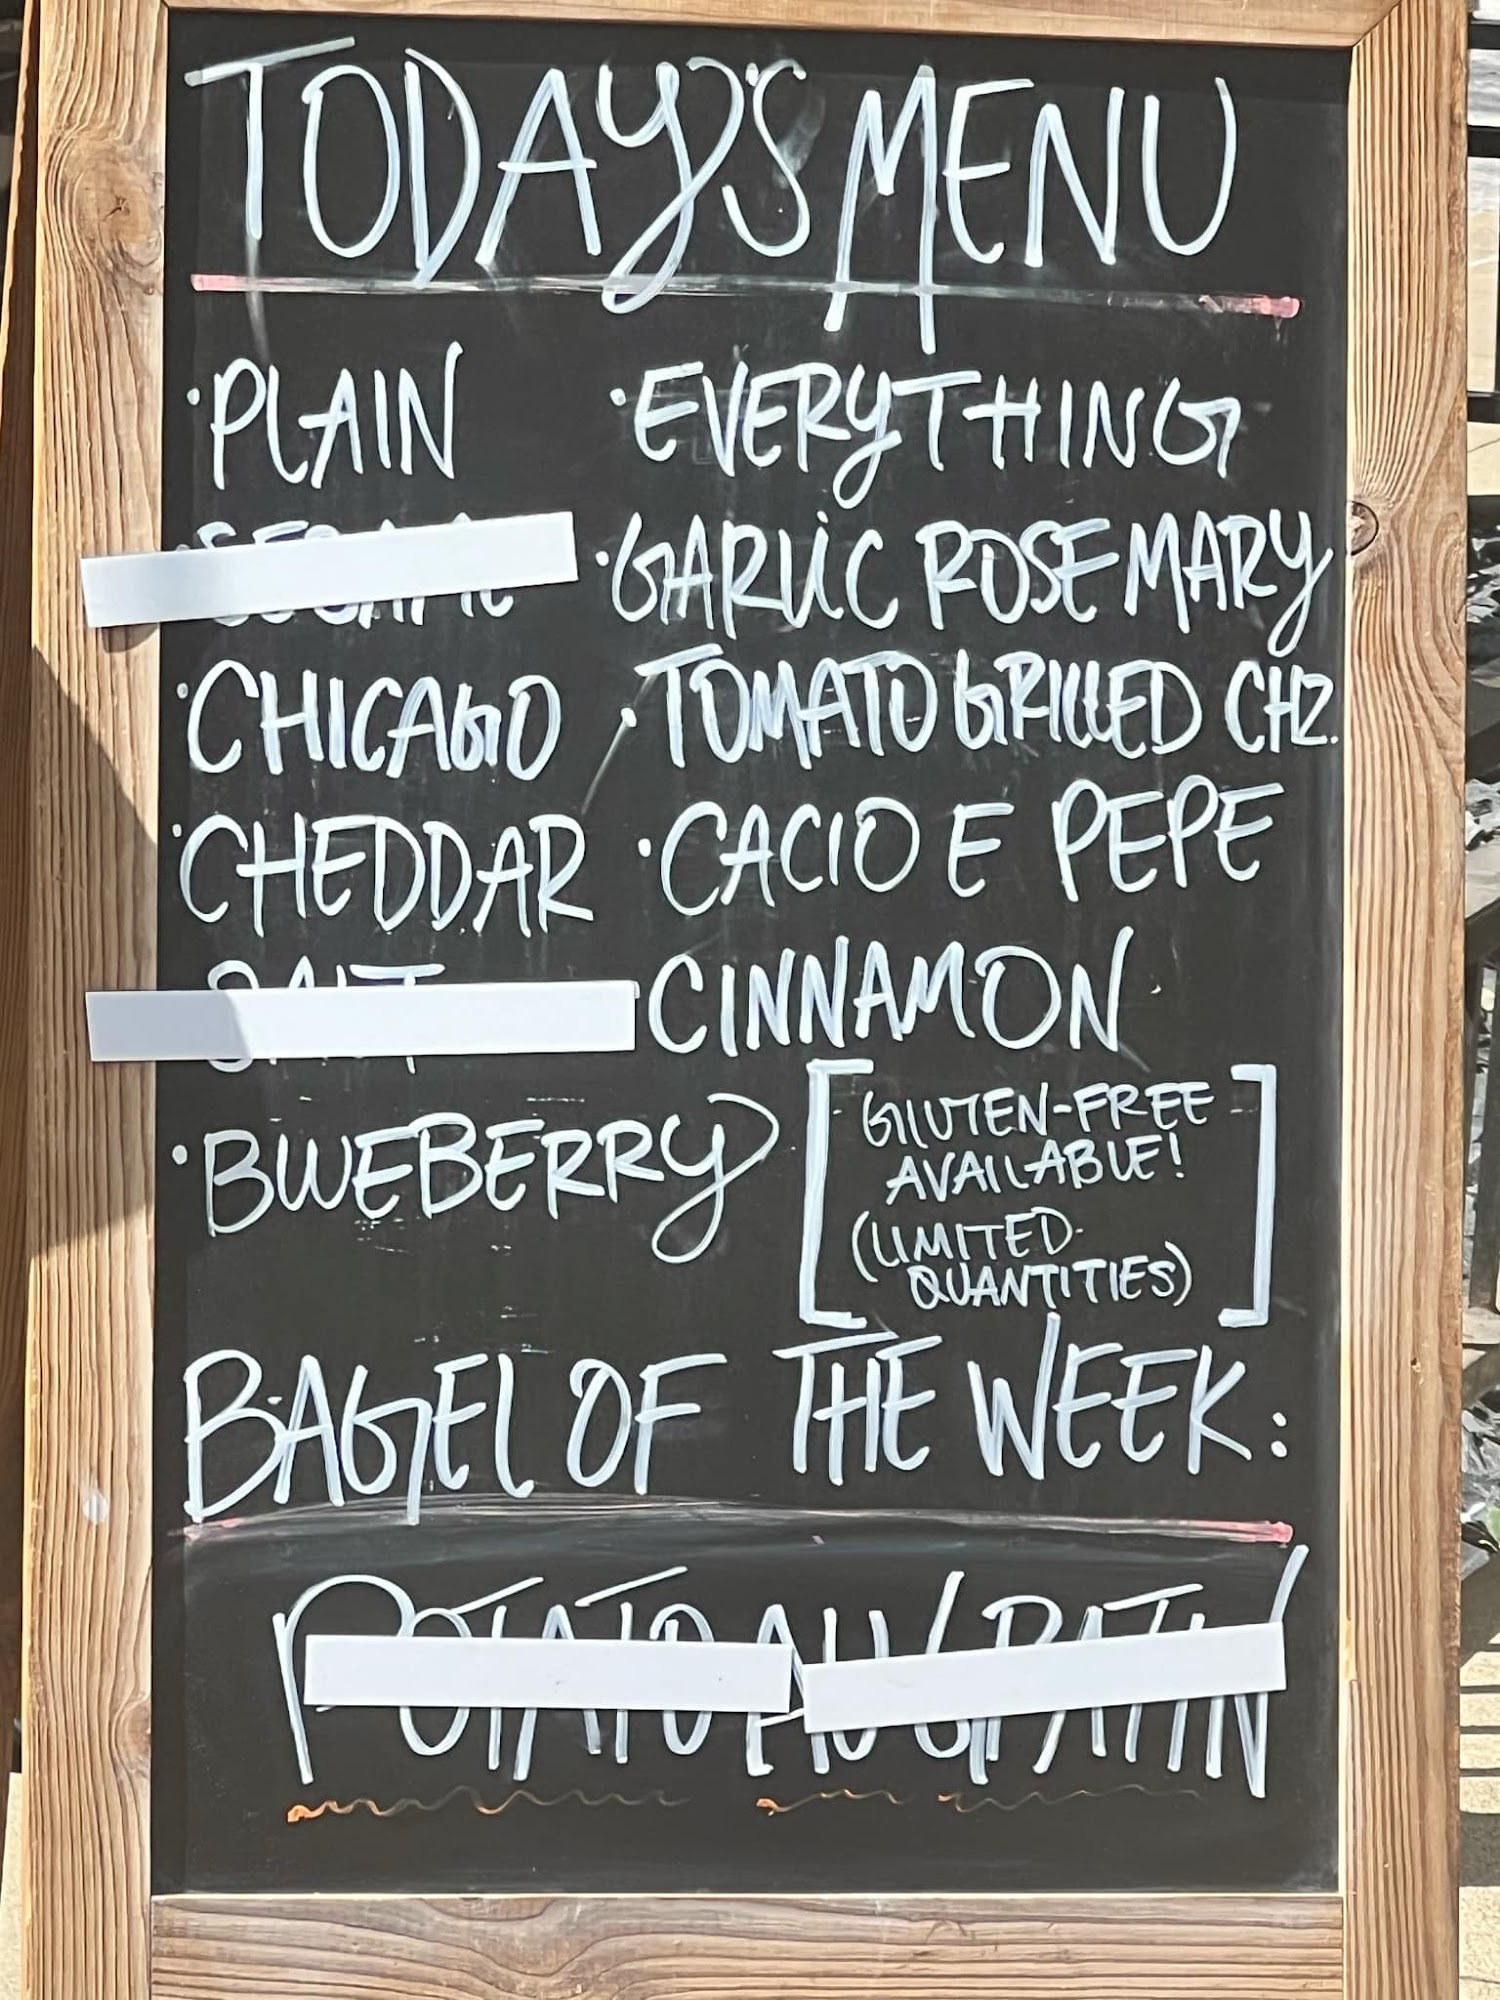 TODAY'S MENU
· PLAIN
· EVERYTHING
· GARLIC ROSEMARY
· CHICAGO
· TOMATO GRILLED CHZ.
· CHEDDAR
· CACIO E PEPE
CINNAMON
· BLUEBERRY
[GLUTEN-FREE
AVAILABLE!
(LIMITED
QUANTITIES)]
BAGEL OF THE WEEK:
POTATO AU GRATIN